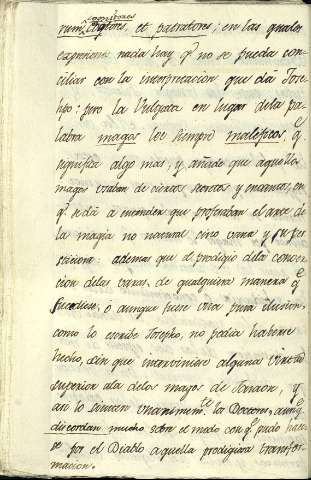 rum, et patratores; en las quales
expresiones nada hay q.e no se pueda con-
ciliar con la interpretacion que dá Jose-
pho: pero la Vulgata en lugar dela pa-
labra magos lee siempre maleficos, q.e
significa algo mas; y añade que aquellos
magos usaban de ciertos secretos y encantos, en
q.e se dá a entender que profesaban el arte de
la magia no natural sino vana y supers-
ticiosa: ademas que el prodigio dela conver-
cion delas varas, de qualquiera manera q.e
sucediese, o aunque fuese una pura ilusion,
como lo escribe Josepho, no podia haberse
hecho, sin que interviniese alguna virtud
superior ala delos magos de Faraon, y
asi lo sienten unanimem.te los Doctores, aunq.e
discordan mucho sobre el modo con q.e pudo hacer-
se por el Diablo aquella prodigiosa transfor-
macion.